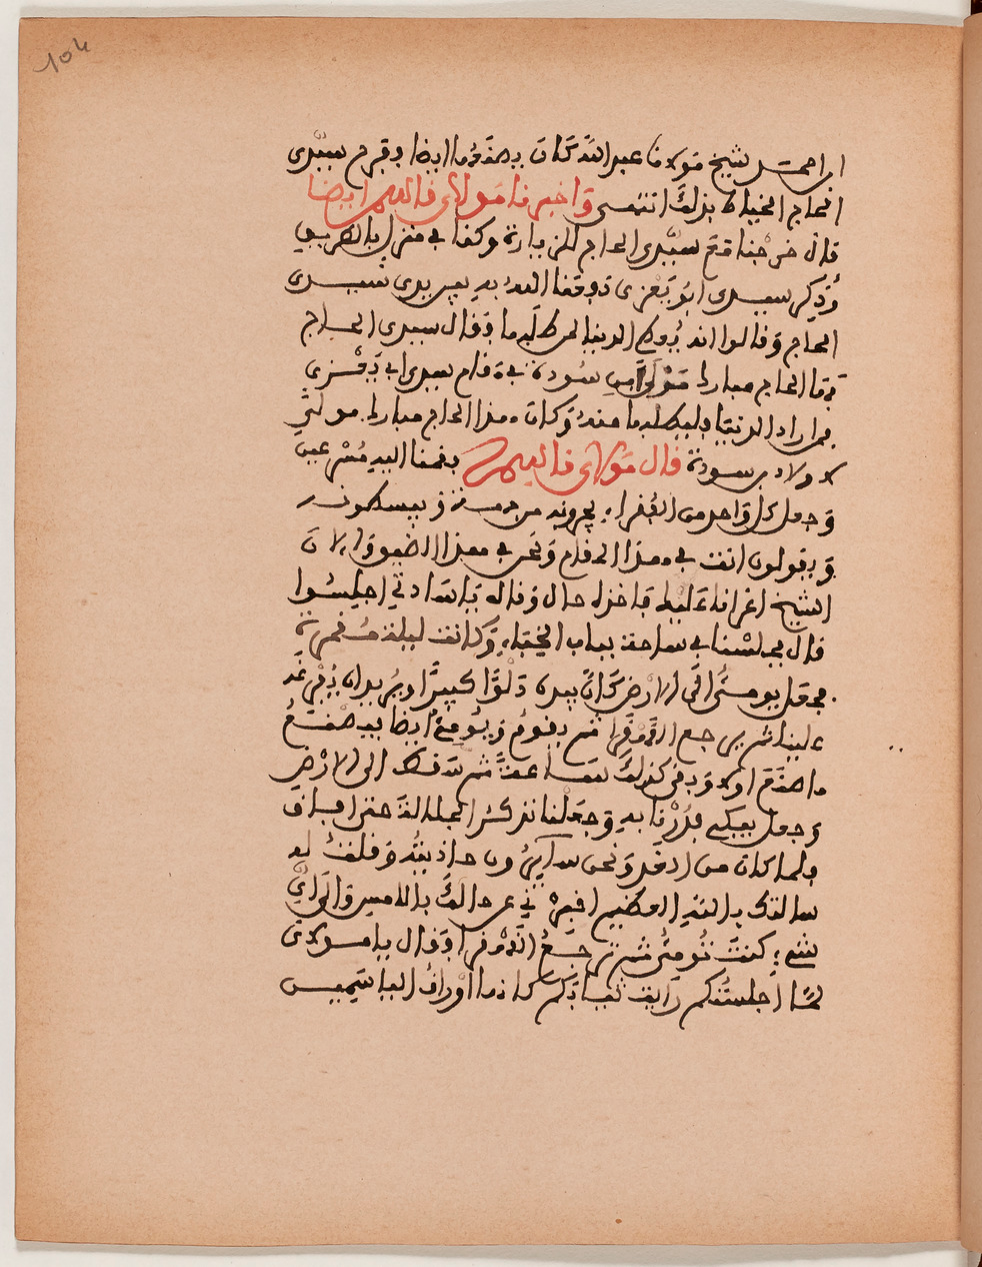 104
ابن احمد شيخ مولانا عبد الله كان يصفهما ايضا وقبره سيدي
الحاج الخياط بذلك انتهى واخبرنا مولاي قاسم ايضا
قال خرجنا مع سيدي الحاج للزيارة وكنا في منزل بالطريق
وذكر سيدي ابو يعزى توفنا الله به بين يدي سيدي
الحاج وقالوا انه يعطي الدنيا لمن طلبها وقال سيدي الحاج
الحاج مبارك مولى بن سودة في مقام سيدي ابي يعزى
فمن اراد الدنيا فليطلبها منه وكان هذا الحاج مبارك مولى
لاولاد بن سودة قال مولاي قاسم فقمنا اليه مسرعين
وجعل كل واحد من الفقراء يجرونه من جهة ويمسكونه
ويقولون انت في هذا المقام ونحن في هذا الضيق والان
الشيخ اغرانا عليك فاخذه حال وقال يا سادتي اجلسوا
قال فجلسنا في ساحة بباب الخباء وكانت ليلة مقمرة
فجعل يومئ الى الارض كان بيده دلوا كبيرا ويريد ان يفرغه
علينا ثم يرجع القهقرا ثم يقوم ويومئ ايضا بيده
ما صنع اولا وبقي كذلك ساعة ثم سقط الى الارض
وجعل يبكي فدرنا به وجعلنا نذكر الجلالة حتى افاق
ولما كان من الغد ونحن سائرون حاذيته وقلت له
سالتك بالله العظيم اخبرني عن حالك بالامس والى اي
شيء كنت تومئ ثم ترجع القهقرا فقال يا مولاي
لما اجلستكم رايت ثيابكم كانها اوراق الياسمين